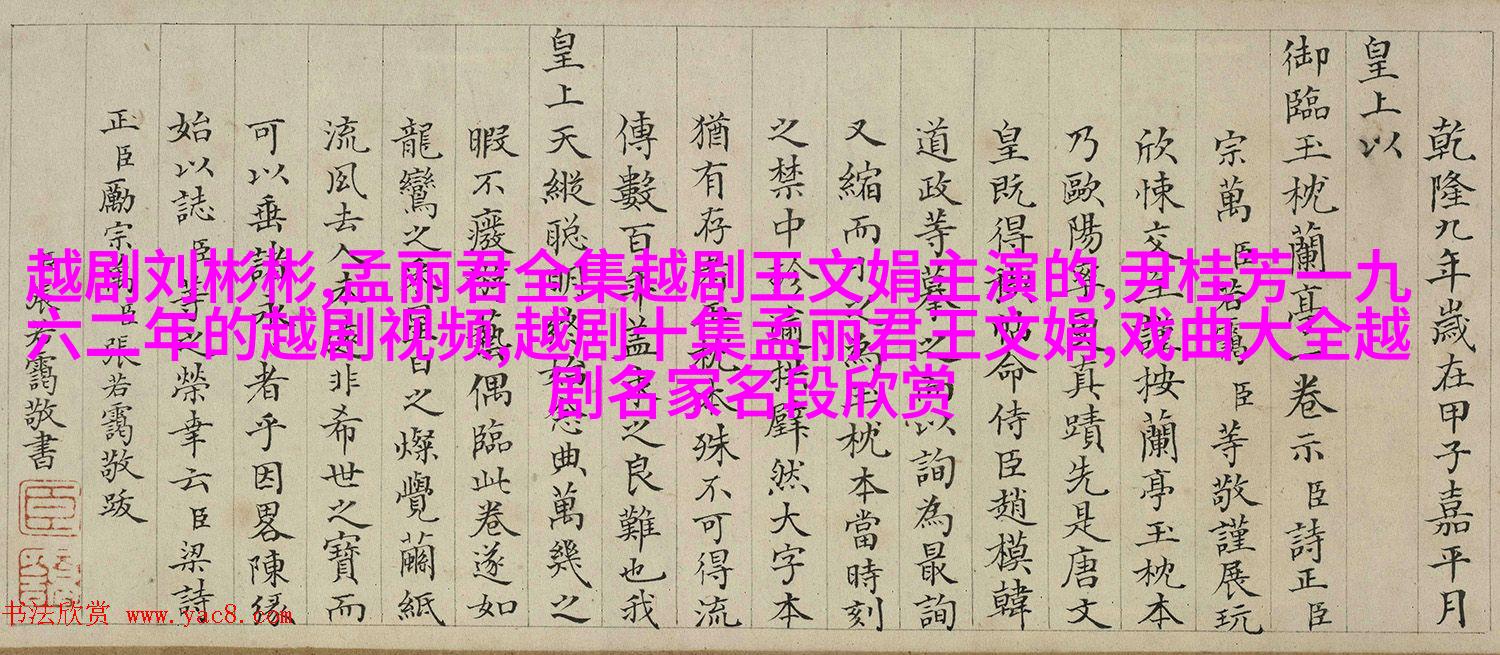 乾隆九年歲在甲子嘉平月
皇上以
御臨玉枕蘭亭一卷示臣詩正臣
宗萬臣若靄臣等敬謹展玩
欣悚交至謹按蘭亭玉枕本
乃歐陽率更真蹟先是唐文
皇既得稧帖命侍臣趙模韓
道政等摹之而以詢為最詢
又縮而小之為玉枕本當時刻
之禁中拱璧然大字本
猶有存玉枕本殊不可得流
傳數百年蓋求之良難也我
皇上天縱聰明典萬幾之
暇不廢藝偶臨此卷遂如
龍鸞之之燦覺繭紙
流風去人未遠非希世之寶而
可以垂諸永者乎因畧陳緣
始以誌臣等之榮幸云臣梁詩
正臣勵宗萬臣張若靄敬跋
張若靄敬書
越剧刘彬彬,孟丽君全集越剧王文娟主演的,尹桂芳一九
六二年的越剧视频,越剧十集孟丽君王文娟,戏曲大全越
剧名家名段欣赏
书法欣赏 www.yac8.com